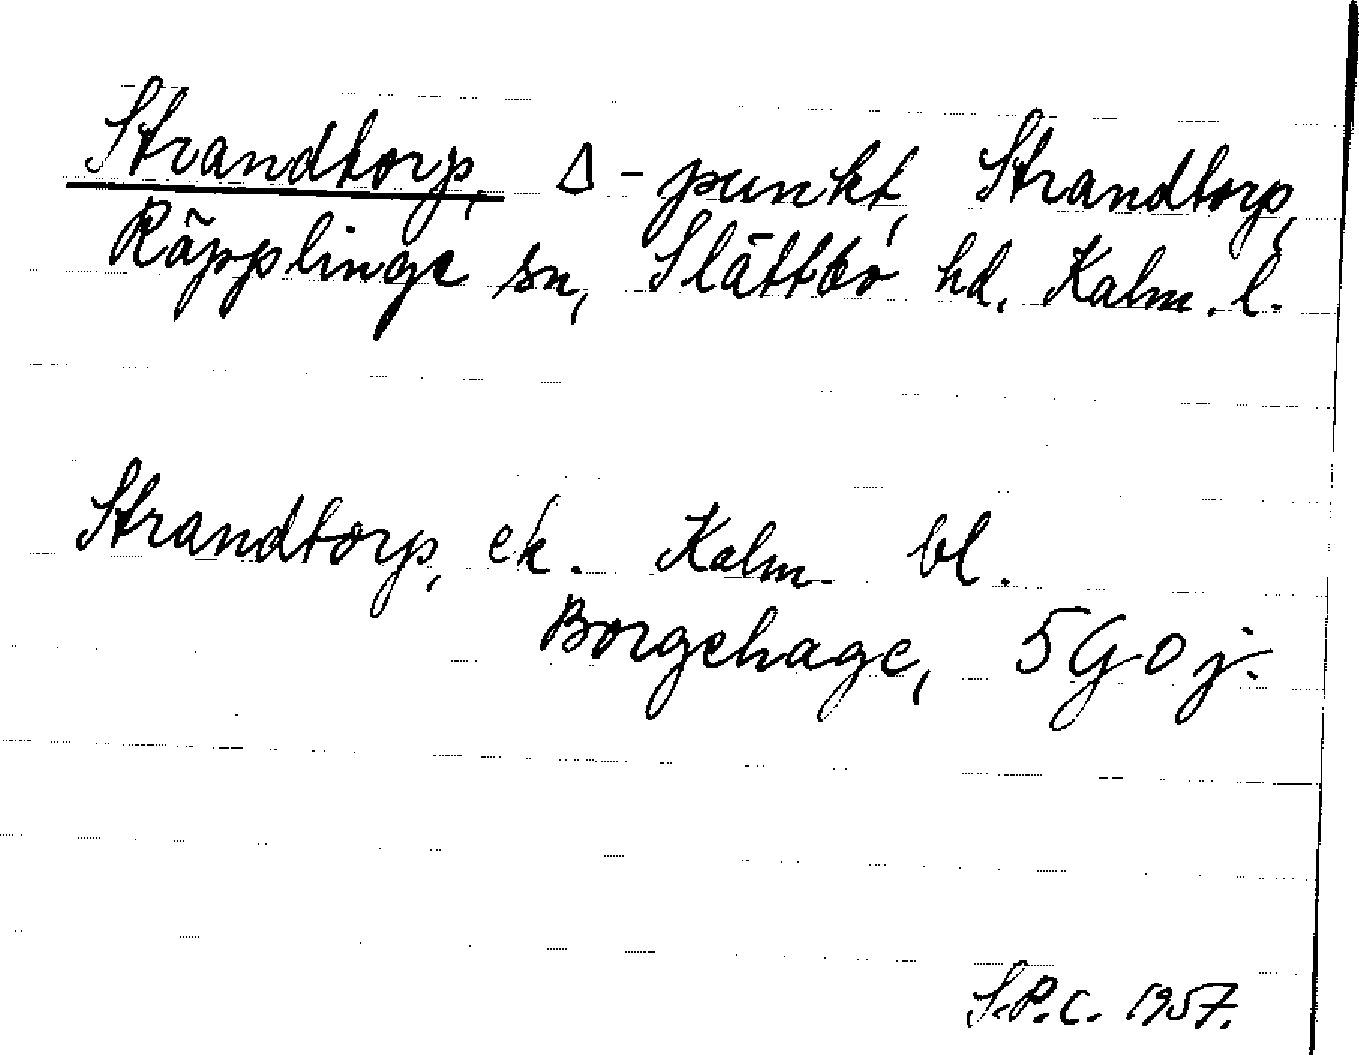 Strandtorp, Δ-punkt, Strandtorp,
Räpplinge sn, Slättbo hd. Kalm. l.
Strandtorp, ek. Kalm bl.
Borgehage, 5G0j.
S.P.C. 1957.